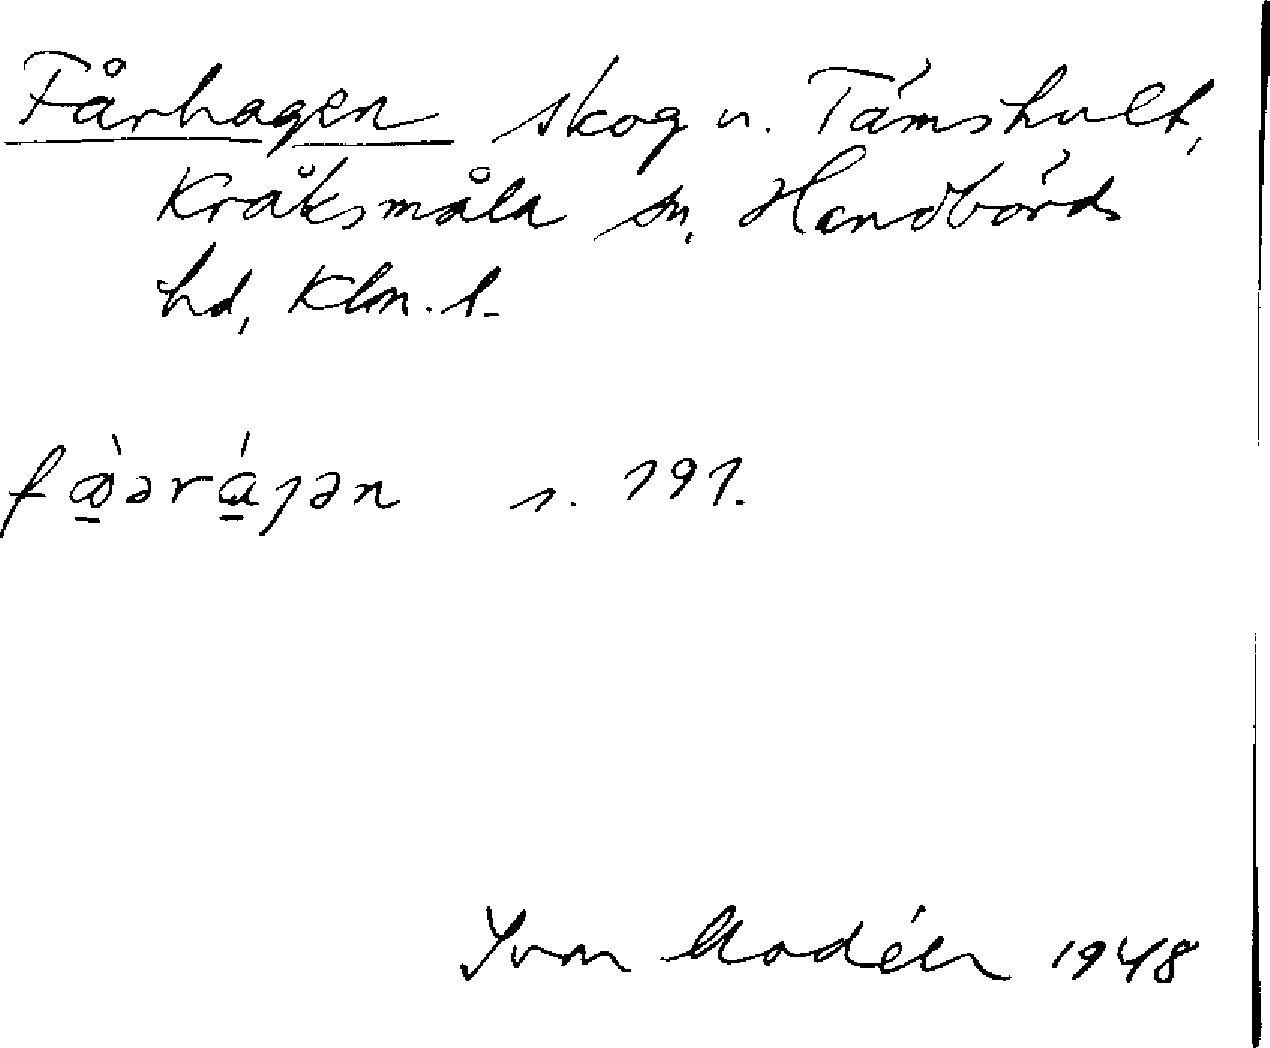 Fårhagen skog u. Tämshult,
Kråksmåla sn, Handbörds
hd, Klm. l.
s. 191.
Yvar Modéer 1948